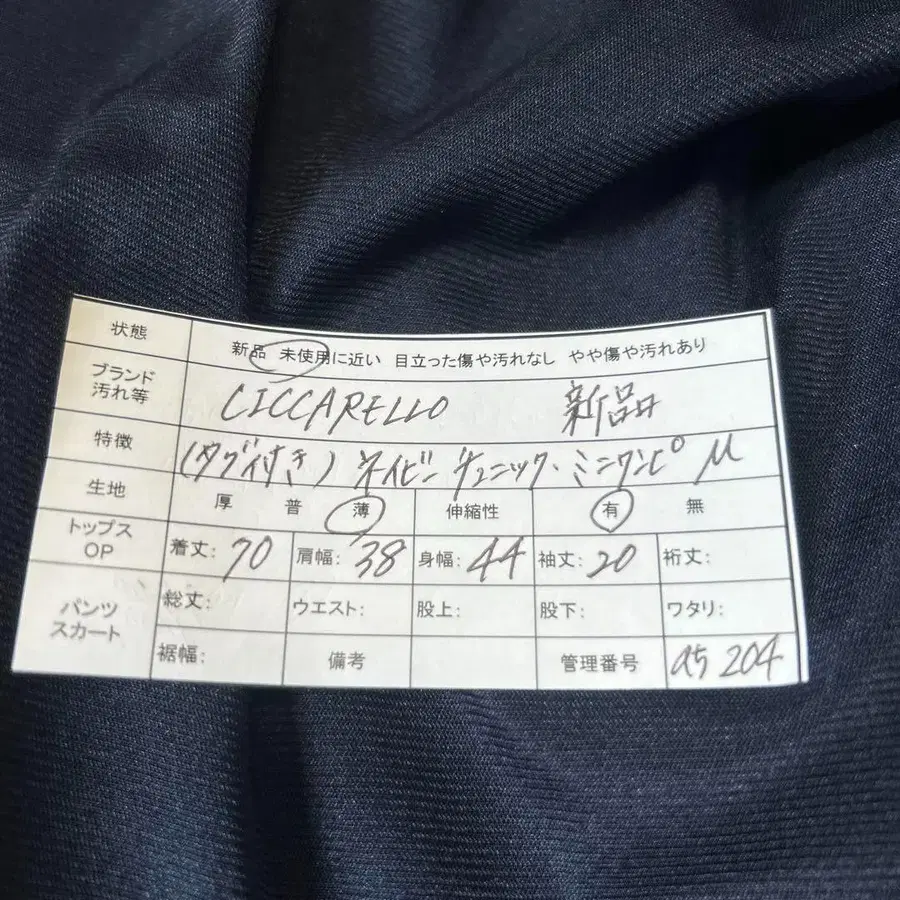 状態 新品 未使用に近い 目立った傷や汚れなし やや傷や汚れあり
ブランド 汚れ等 CICCARELLO 新品
特徴 (タグ付き) ネイビー チュニック・ミニワンピ M
生地 厚 普 薄 伸縮性 有 無
トップス OP 着丈: 70 肩幅: 38 身幅: 44 袖丈: 20 裄丈:
パンツ スカート 総丈: ウエスト: 股上: 股下: ワタリ:
裾幅: 備考 管理番号 a5 204